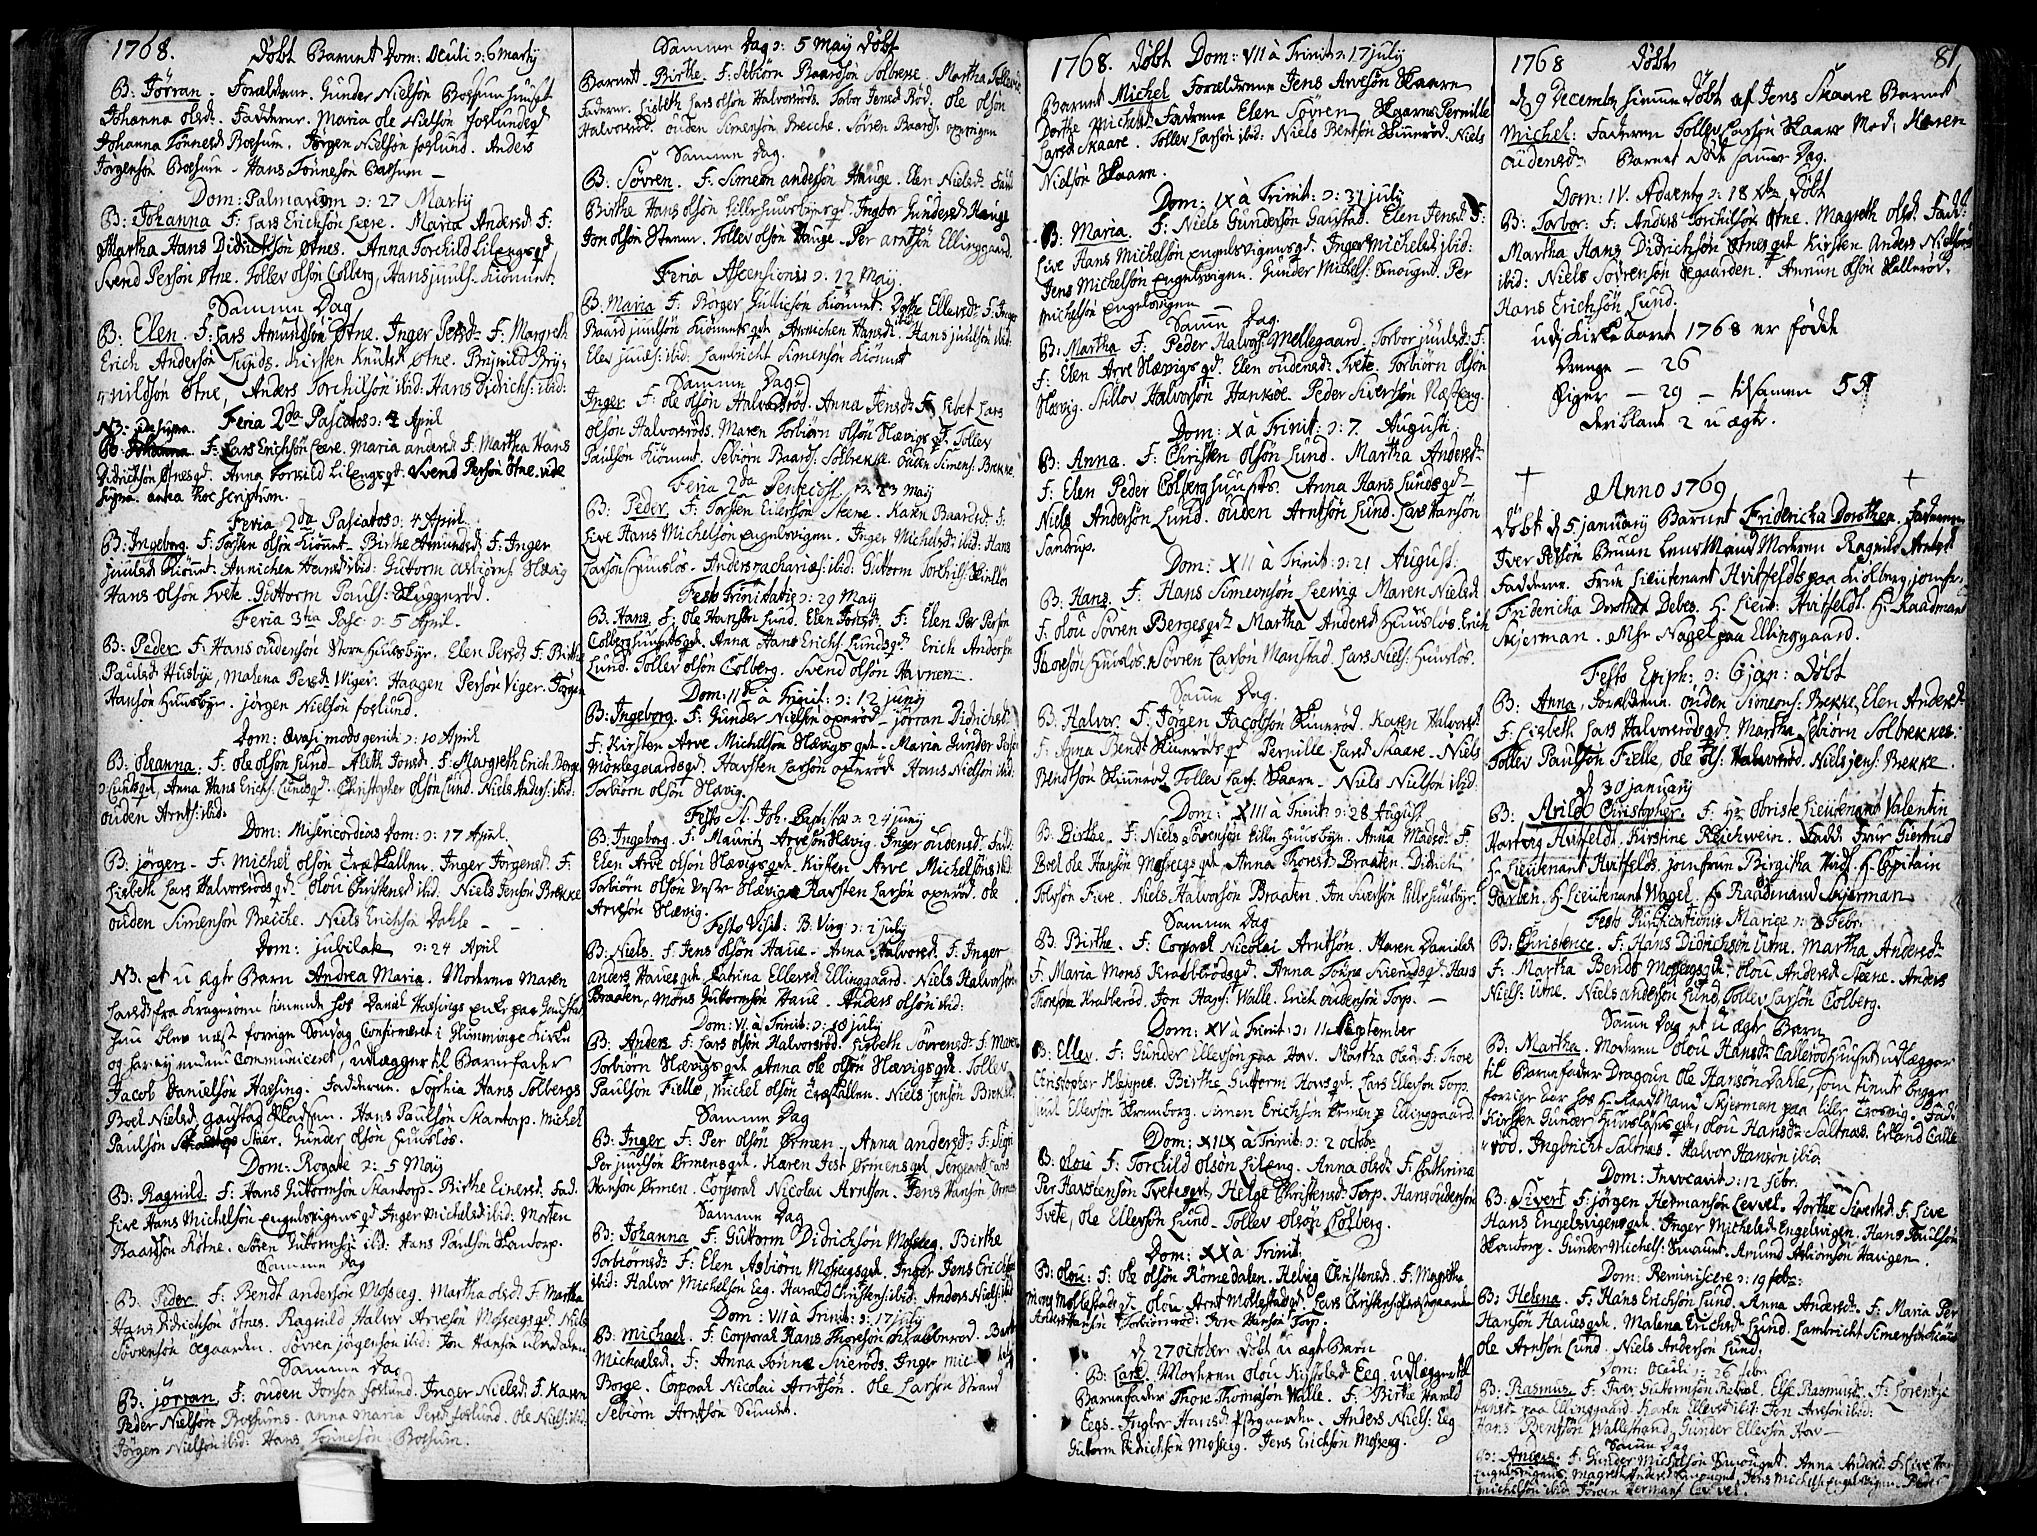 1768. Døbt Barnet Dom: Oculi ɔ: 6 Marty
B: Jørran. Forældrene. Gunder Nielsøn Boesum huuset
Johanna olsd. Fadderne. Maria ole Nielsøn foslundsqd
Johanna Tønnesd Boesum. Jørgen Nielsøn foslund. Anders
Jørgensøn Boesum - Hans Tønnesøn Boesum —
Dom: Palmarum ɔ: 27 Marty
B: Johanna F: Lars Erichsøn Leere. Maria Andersd F:
Martha Hans Didrichsøn Øtnes. Anna Torchild Lilengsqd
Svend Persøn Øtne. Tollev olsøn Colberg, Hans juuls: Kiønnet.
Samme Dag
B: Elen. F: Lars Amundsøn Øtne. Inger Persd F: Margreth
Erich Andersøn Lunds. Kirsten Knutsd Øtne. Brynild Bry-
nildsøn Øtne, Anders Torchilsøn ibid: Hans Didrichs: ibid:
Feria 2da Pascatos ɔ: 4 April
NB: vide supra.
B: Johanna F: Lars Erichsøn Leere. Maria andersd F: Martha Hans
Didrichsøn Øtnesqd. Anna Torkild Lilengsqd. Svend Persøn Øtne. vide
supra. antea hoc scriptum.
Feria 2da Pascatos ɔ: 4 April
B: Ingeborg. F: Torsten olsøn Kiønnet - Birthe Amundsd F: Inger
juulsd Kiønnet. Annichen Hansd ibid: Guttorm Asbiørns: Slævig
Hans olsøn Tvete. Guttorm Pauls: Skuggerød.
Feria 3tia Pasc: ɔ: 5 April.
B: Peder F: Hans oudensøn Store Huusbye. Elen Persd F: Birthe
Paulsd Husbye, Malena Persd Viger. Haagen Persøn Viger. Jørgen
Hansøn Huusbye. jørgen Nielsøn foslund.
Dom: Qvasi modo geniti ɔ: 10 April
B: Oleanna. F: ole olsøn Lund - Alith Jonsd. F: Margreth Erich Borge
Lundsqd, Anna Hans Erichs: Lundsqd. Christopher olsøn Lund. Niels Anders: ibid:
ouden Arnts: ibid:
Dom: Misericordias Dom: ɔ: 17 April
B: jørgen - F: Michel olsøn Træskallen. Inger Jørgensd. F:
Lisbeth Lars Halvorsrødsqd. olou Christensd ibid. Niels Jensøn Brekke
ouden Simensøn Brecche. Niels Erichsøn Dahle —
Dom: jubilate ɔ: 24 April
NB. et u ægte Barn Andrea Maria. Moderens Maren
Larsd fra Kragerøen tienende hos Daniel Hassings enke paa Gaustad
hun blev næst forrige Søndag Confirmeret i Glemminge Kirke
og har ej endnu Communiceret, udlægger til Barnefader
Jacob Danielsøn Hassing. Fadderne. Sophia Hans Solbergs
Boel Nielsd gaustad Pladsen. Hans Paulsøn Skantorp. Michel
Paulsøn Skaar. Gunder olsøn Huusløs.
Dom: Rogate ɔ: 5 May
B: Ragnild F: Hans Guttormsøn Skantorp - Birthe Einersd. Fad.
Live Hans Michelsøn engelsvigensqd Inger Michelsd ibid: Morten
Baardsøn Rødne. Søren Guttormsøn ibid: Hans Paulsøn Skantorp.
Samme Dag
B: Peder F: Bendt andersøn Mosseg. Martha olsd F: Martha
Hans Didrichsøn Øtnes. Ragnild Halvor Arvesøn Mossegsqd. Niels
Sørensøn Øegaarden. Søvren jørgensøn ibid: Jon Hansøn
Samme Dag
B: jørran F: ouden Jonsøn foslund. Inger Nielsd F. Karen
Peder Nielsøn Boesums. anna Maria Persd foslund. Ole Niels: ibid:
Jørgen Nielsøn ibid: Hans Tønnesøn Boesum.
Samme Dag ɔ: 5 May Døbt
Barnet Birthe. F: Sebiørn Baardsøn Solbrekke. Martha Tollevsd
Faderne. Lisbeth Lars olsøn Halvorsrøds. Torbor Jensd Rød. Ole olsøn
Halvorsrød. ouden Simensøn Brecche. Søren Baards: openrigen
Samme Dag.
B. Søvren. F: Simeon andersøn Hauge. Elen Nielsd Fadd:
Birthe Hans olsøn Lillehuusbyesqd. Ingbor Gundersd Hauge
Jon olsøn Stene. Tollev olsøn Hauge. Per arntsøn Ellinggaard.
Feria Ascensionis ɔ: 12 May.
B: Maria F: Borger Gullicsøn Kiønnet. Dorthe Ellevsd F: Inger
Baard juulsøn Kiønnetsqd Annichen Hansd ibid: Hans juulsøn ibid:
Elev juuls: ibid: Lambricht Simensøn Kiønnet
Samme Dag
Inger F: ole olsøn Halvorsrød. Anna Jensd F: Lisbet Lars
olsøn Halvorsrøds. Maren Torbiørn olsøn Slævigsqd. Tollev
Paulsøn Kiønnet. Sebiørn Baards: Solbrekke. ouden Simens: Brekke.
Feria 2da Pentecost ɔ: 23 May
B: Peder F: Torsten Eilersøn Skene. Karen Baardsd. F:
Live Hans Michelsøn engelsvigen. Inger Michelsd ibid: Hans
Larsøn Huusløs - Anders zachariæs: ibid: Guttorm Torkils: Skinlløs
Festo Trinitatis ɔ: 29 May
B: Hans F: ole Hansøn Lund. Elen Torisd. F: Elen Per Persøn
Colberghuusetsqd. Anna Hans Erichs: Lundsqd. Erich Andersøn
Lund. Tollev olsøn Colberg. Svend olsøn Havnen —
Dom: II à Trinit: ɔ: 12 juny
B: Ingeborg. F: Gunder Nielsøn openrød - jørran Didrichsd:
F: Kirsten Arve Michelsøn Slævigsqd - Maria Gunder
Møklegaardsqd. Harsten Larsøn openrød. Hans Nielsøn ibid:
Torbiørn olsøn Slævig.
Festo St. Joh. Baptistæ ɔ: 24 juny
B: Ingeborg. F: Mauritz Arvesøn Slævig. Inger oudensd. Fadd.
Elen Arve olsøn Slævigsqd. Kirsten Arve Michelsøns ibid:
Torbiørn olsøn Slævig. Karsten Larsøn openrød. ole
Arvesøn Slævig.
Festo Visit: B. Virg: ɔ: 2 july
B: Niels. F: Jens olsøn Haue - Anna Halvorsd. F: Inger
anders Hauesqd. Catrina Ellevsd Ellinggaard. Niels Halvorsøn
Braaten, Mons Guttormsøn Haue. Anders olsøn ibid:
Dom: VI à Trinit: ɔ: 10 july
B: Anders F: Lars olsøn Halvorsrød. Lisbeth Sørensd: F: Maren
Torbiørn Slævigsqd Anna ole olsøn Slævigsqd. Tollev
Paulsøn Fielle, Michel olsøn Træskallen. Niels jensøn Brekke.
Samme Dag
B: Inger F: Per olsøn Ørmen. Anna andersd. F: Signe
Per juulsøn Ørmensqd. Karen Jest Ørmensqd. Sergeant Lars
Hansøn Ørmen. Corporal Nicolai Arntsøn. Jens Hansøn Ørmen
Samme Dag
B: Johanna F: Guttorm Didrichsøn Mosseg. Birthe
Torbiørnsd: F: Elen Asbiørn Mossegsqd. Inger Jens Erichs:
ibid: Halvor Michelsøn Eeg. Harald Christens: ibid: Anders Niels: ibid
Dom: VII à Trinit: ɔ: 17 july
B: Michael. F: Corporal Hans Thoresøn Krabberød. Berthe
Michaelsd. F: Anna Tønne Svierøds. Inger
Borge. Corporal Nicolai Arntsøn. Ole Larsøn Strand
Sebiørn Arntsøn Sundet.
1768. Døbt Dom: VII à Trinit ɔ: 17 july
Barnet Michel Forældrene Jens Arvesøn Skaare
Dorthe Michelsd. Fadderne Elen Søvren Skaares Pernille
Larsd Skaare. Tollev Larsøn ibid: Niels Bentsøn Skinnerød. Niels
Nielsøn Skaare.
Dom: IX à Trinit: ɔ: 31 july
B: Maria. F: Niels Gundersøn Gaustad. Elen Jensd. F:
Live Hans Michelsøn engelsvigensqd. Inger Michelsd ibid:
Jens Michelsøn engelsvigen. Gunder Michels: Smouget. Per
Michelsøn Engelsvigen
Samme Dag.
B: Martha F: Peder Halvors: Mellegaard. Torbor juulsd: F:
F: Elen Arve Slævigsqd. Elen oudensd. Tvete. Torbiørn olsøn
Slævig. Stillov Halvorsøn Hankøe. Peder Siversøn Næseng.
Dom: X à Trinit: ɔ: 7. Augusti.
B: Anna. F: Christen olsøn Lund. Martha Andersd.
F: Elen Peder Colberghuusets. Anna Hans Lundsqd -
Niels Andersøn Lund. ouden Arntsøn Lund. Lars Hansøn
Sandrup.
Dom: XII à Trinit: ɔ: 21 August.
B: Hans F: Hans Simeonsøn Leevig Maren Nielsd
F: olou Søvren Bergesqd. Martha Andersd Huusløs. Erich
Thoresøn Huusløs. Søvren Larsøn Manstad. Lars Niels: Huusløs.
Samme Dag.
B: Halvor. F: Jørgen Jacobsøn Skinnerød. Karen Halvorsd
F: Anna Bendt Skinnerødsqd Pernille Larsd Skaare. Niels
Bendtsøn Skinnerød. Tollev Lars: Skaare - Niels Nielsøn ibid:
Dom: XIII à Trinit: ɔ: 28 August
B: Birthe. F: Niels Sørensøn Lille Huusbye. Anna Madsd. F:
Boel ole Hansøn Mossegsqd. Anna Thoresd Braaten. Didrich
Tolvsøn Fieve. Niels Halvorsøn Braaten. Jon Iversøn lille huusbye.
Samme Dag
B. Birthe. F: Corporal Nicolai Arntsøn. Karen Daniels
F. Maria Mons Krabberødsqd. Anna Tønne Svierødsqd. Hans
Thoresøn Krabberød. Jon Hans: Walle. Erich oudensøn Torp. —
Dom: XV à Trinit ɔ: 11 September
B: Ellev. F: Gunder Ellevsøn paa Hov. Martha olsd. F: Thore
Christopher Kleppes. Birthe Guttorm Hovsqd. Lars Ellevsøn Torp.
juul Ellevsøn Skrumborg. Simen Erichsøn Ørmen p Ellinggaard
Dom: XIIX à Trinit: ɔ: 2 octob:
B: olou F: Torchild olsøn Lileng. Anna olsd. F: Cathrina
Per Harstensøn Tvetesqd. Helge Christensd: Torp. Hans oudensøn
Tvete, ole Ellevsøn Lund - Tollev olsøn Colberg.
Dom: XX à Trinit:
B: olou: F: ole olsøn Rømedalen. Helvig Christensd. F: Magretha
Mons Mollestadsqd. olou Arnt Mollestadsqd. Lars Christens:
Anders Hansøn Torbiørnrød. Jon Hansøn Torp.
d. 27 october Døbt u ægte Barn
B: Lars. Moderen olou Kiystelsd Eeg. udlægger til
Barnefader Thore Thomesøn Walle. F: Birthe Harald
Eegs. Ingber Hansd Øegaarden. Anders Niels: Eeg
Gutorm Didrichsøn Mosseg. Jens Erichsøn Mosseg.
1768 Døbt 81
d. 9 December hiemme Døbt af Jens Skaare Barnet
Michel: Faderen Tollev Larsøn Skaare Mod: Karen
oudensd: Barnet døde samme Dag.
Dom: IV. Advent ɔ: 18 Xbr Døbt
B: Torbor: F: Anders Torchilsøn Øtne. Magreth olsd: Fadd:
Martha Hans Didrichsøn Øtnesqd Kirsten Anders Nielsøns
ibid: Niels Sørensøn Øegaarden. Amun olsøn Skallerød.
Hans Erichsøn Lund.
udj Kirke aaret 1768 er fødte
Drenge — 26
Piger — 29 — tilsamen 55
Deriblant 2 u ægte.
Anno 1769
Døbt d. 5 january Barnet Fridericha Dorothea. Faderen
Iver Persøn Bruun Lens Mand Moderen Ragnild Arntsd
Fadderne. Frue Lieutenant Hvitfeldts paa Kiølberg, jomfr:
Fridericha Dorothea Debes. H. Lieut: Hvitfeldt. H. Raadmand
Skjerman. Mhr Nagel paa Ellinggaard.
Festo Epiph: ɔ: 6 jan: Døbt
B: Anna Forældrene. ouden Simens: Brekke, Elen Andersd.
F. Lisbeth Lars Halvorsrødsqd. Martha Sebiørn Solbrekkes.
Tollev Paulsøn Fielle, Ole ols: Halvorsrød. Niels jens: Brekke.
d. 30 january
B: Arild Christopher. F: Hr Obriste Lieutenant Valentin
Hartvig Hvitfeldt. Kirstine Reichwein. Fadd. Frue Giertrud
H. Lieutenant Hvitfelds. jomfrue Birgitha Hvitf: H. Capitain
Garben. H. Lieutenant Wagel. H. Raadmand Skjerman
Festo Purificationis Mariæ ɔ: 2 Febr:
B: Christence. F: Hans Didrichsøn Utne. Martha Andersd.
F: Martha Bendt Mossegsqd. olou Andersd Skene. Anders
Niels: Utne. Niels andersøn Lund. Tollev Larsøn Colberg.
Samme Dag et u ægte Barn
B: Martha. Moderen olou Hansd: Callerødhuuset udlægger
til Barnefader Dragoun Ole Hansøn Dahle, som tiente begge
forrige Aar hos H. Raadmand Skjerman paa lille Trosvig. Fadd:
Kirsten Gunder Huusløsqd, olou Hansd: Saltnæs. Erland Calle-
rød. Ingbricht Saltnæs. Halvor Hansøn ibid:
Dom: Invocavit ɔ: 12 febr.
B: Sivert F: jørgen Hermansøn Levvel. Dorthe Siversd. F: Live
Hans Engelsvigensqd. Inger Michelsd: Engelvigen. Hans Paulsøn
Skantorp. Gunder Michels: Smouget. Amund Asbiørnsøn Haugen.
Dom: Reminiscere ɔ: 19 febr:
B: Helena. F: Hans Erichsøn Lund. Anna Andersd. F: Maria Per
Hansøn Hauesqd. Malena Erichsd Lund. Lambricht Simensøn Kiønnet
ole Arntsøn Lund. Niels Andersøn Lund.
Dom: Oculi ɔ: 26 febr
B: Rasmus. F: Iver Guttormsøn Refvel. Else Rasmusd. F: Lorentze
Hansd: paa Ellinggaard. Karen Ellevsd ibid: Jon Arvesøn ibid:
Hans Bentsøn Wallestrand. Gunder Ellevsøn Hov —
Samme Dag
B: Anders F: Gunder Michelsøn Smouget. Anna Andersd. F: Live Hans
Engelsvigens. Magreth Andersd Smouget. Jens Michels: Engelsvigen. Peder
Michelsøn ibid: Jørgen Hermans: Levvel.